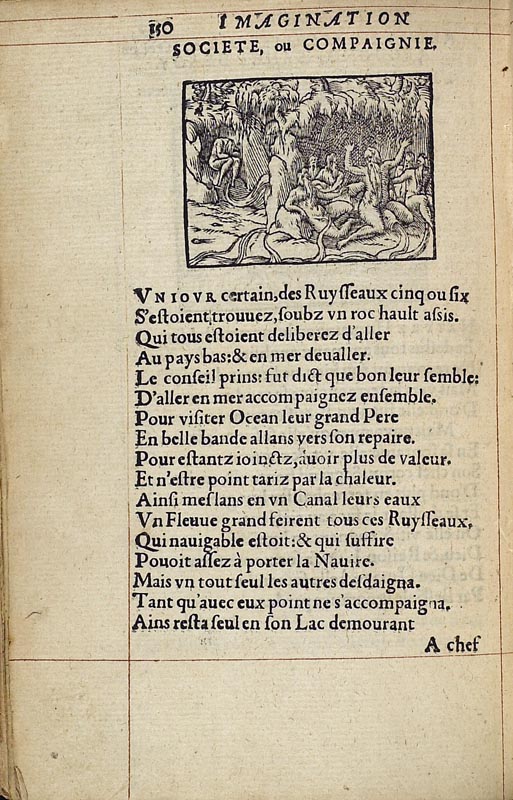 150 IMAGINATION
SOCIETE, ou COMPAIGNIE.
VN IOVR certain, des Ruysseaux cinq ou six
S'estoient trouuez, soubz vn roc hault assis.
Qui tous estoient deliberez d'aller
Au pays bas: & en mer deualler.
Le conseil prins: fut dict que bon leur semble:
D'aller en mer accompaignez ensemble.
Pour visiter Ocean leur grand Pere
En belle bande allans vers son repaire.
Pour estantz ioinctz, auoir plus de valeur.
Et n'estre point tariz par la chaleur.
Ainsi meslans en vn Canal leurs eaux
Vn Fleuue grand feirent tous ces Ruysseaux,
Qui nauigable estoit: & qui suffire
Pouoit assez à porter la Nauire.
Mais vn tout seul les autres desdaigna.
Tant qu'auec eux point ne s'accompaigna.
Ains resta seul en son Lac demourant
A chef